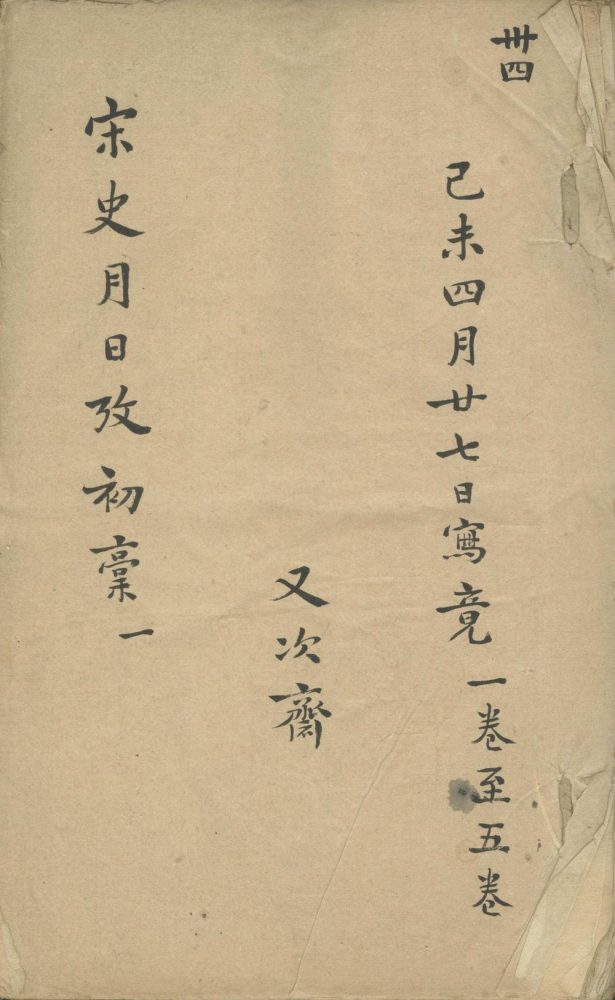 卌四
己未四月廿七日寫竟 一卷至五卷
又次齋
宋史月日攷初稾一